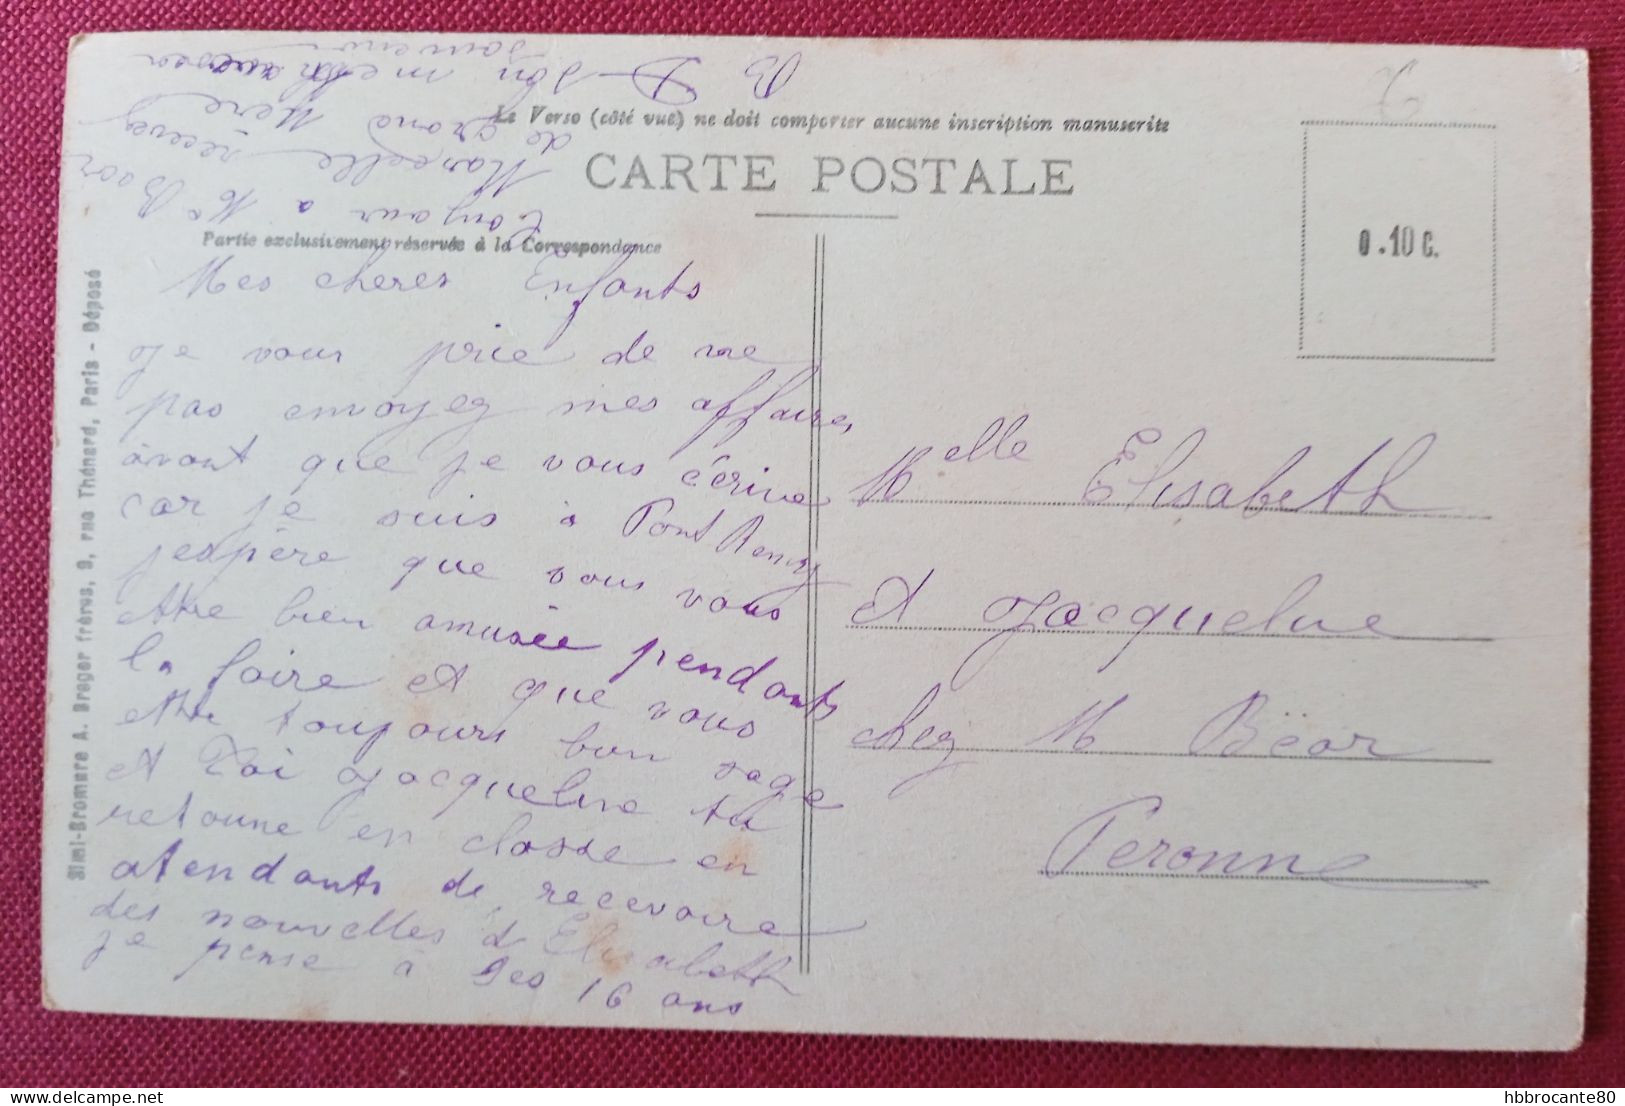 Le Verso (côté vue) ne doit comporter aucune inscription manuscrite
CARTE POSTALE
Partie exclusivement réservée à la Correspondance
0.10 C.
Simi-Bromure A. Breger frères, 9, rue Thénard, Paris - Déposé
Mes cheres Enfants
Je vous prie de me
pas envoyez mes affaires
avant que je vous écrive
car je suis à Pont Remy
jespère que vous vous
ettre bien amusée pendants
la foire et que vous
ettre toujours bien sage
et Toi Jacqueline tu
retourne en classe en
atendants de recevoire
des nouvelles d Elisabeth
je pense à ses 16 ans
Bonjour a Me Bëor
Marcelle recevez
de grand Mere
son meilleur
souvenir
B D
Melle Elisabeth
et Jacqueline
chez M Bëor
Peronne
hbbrocante80